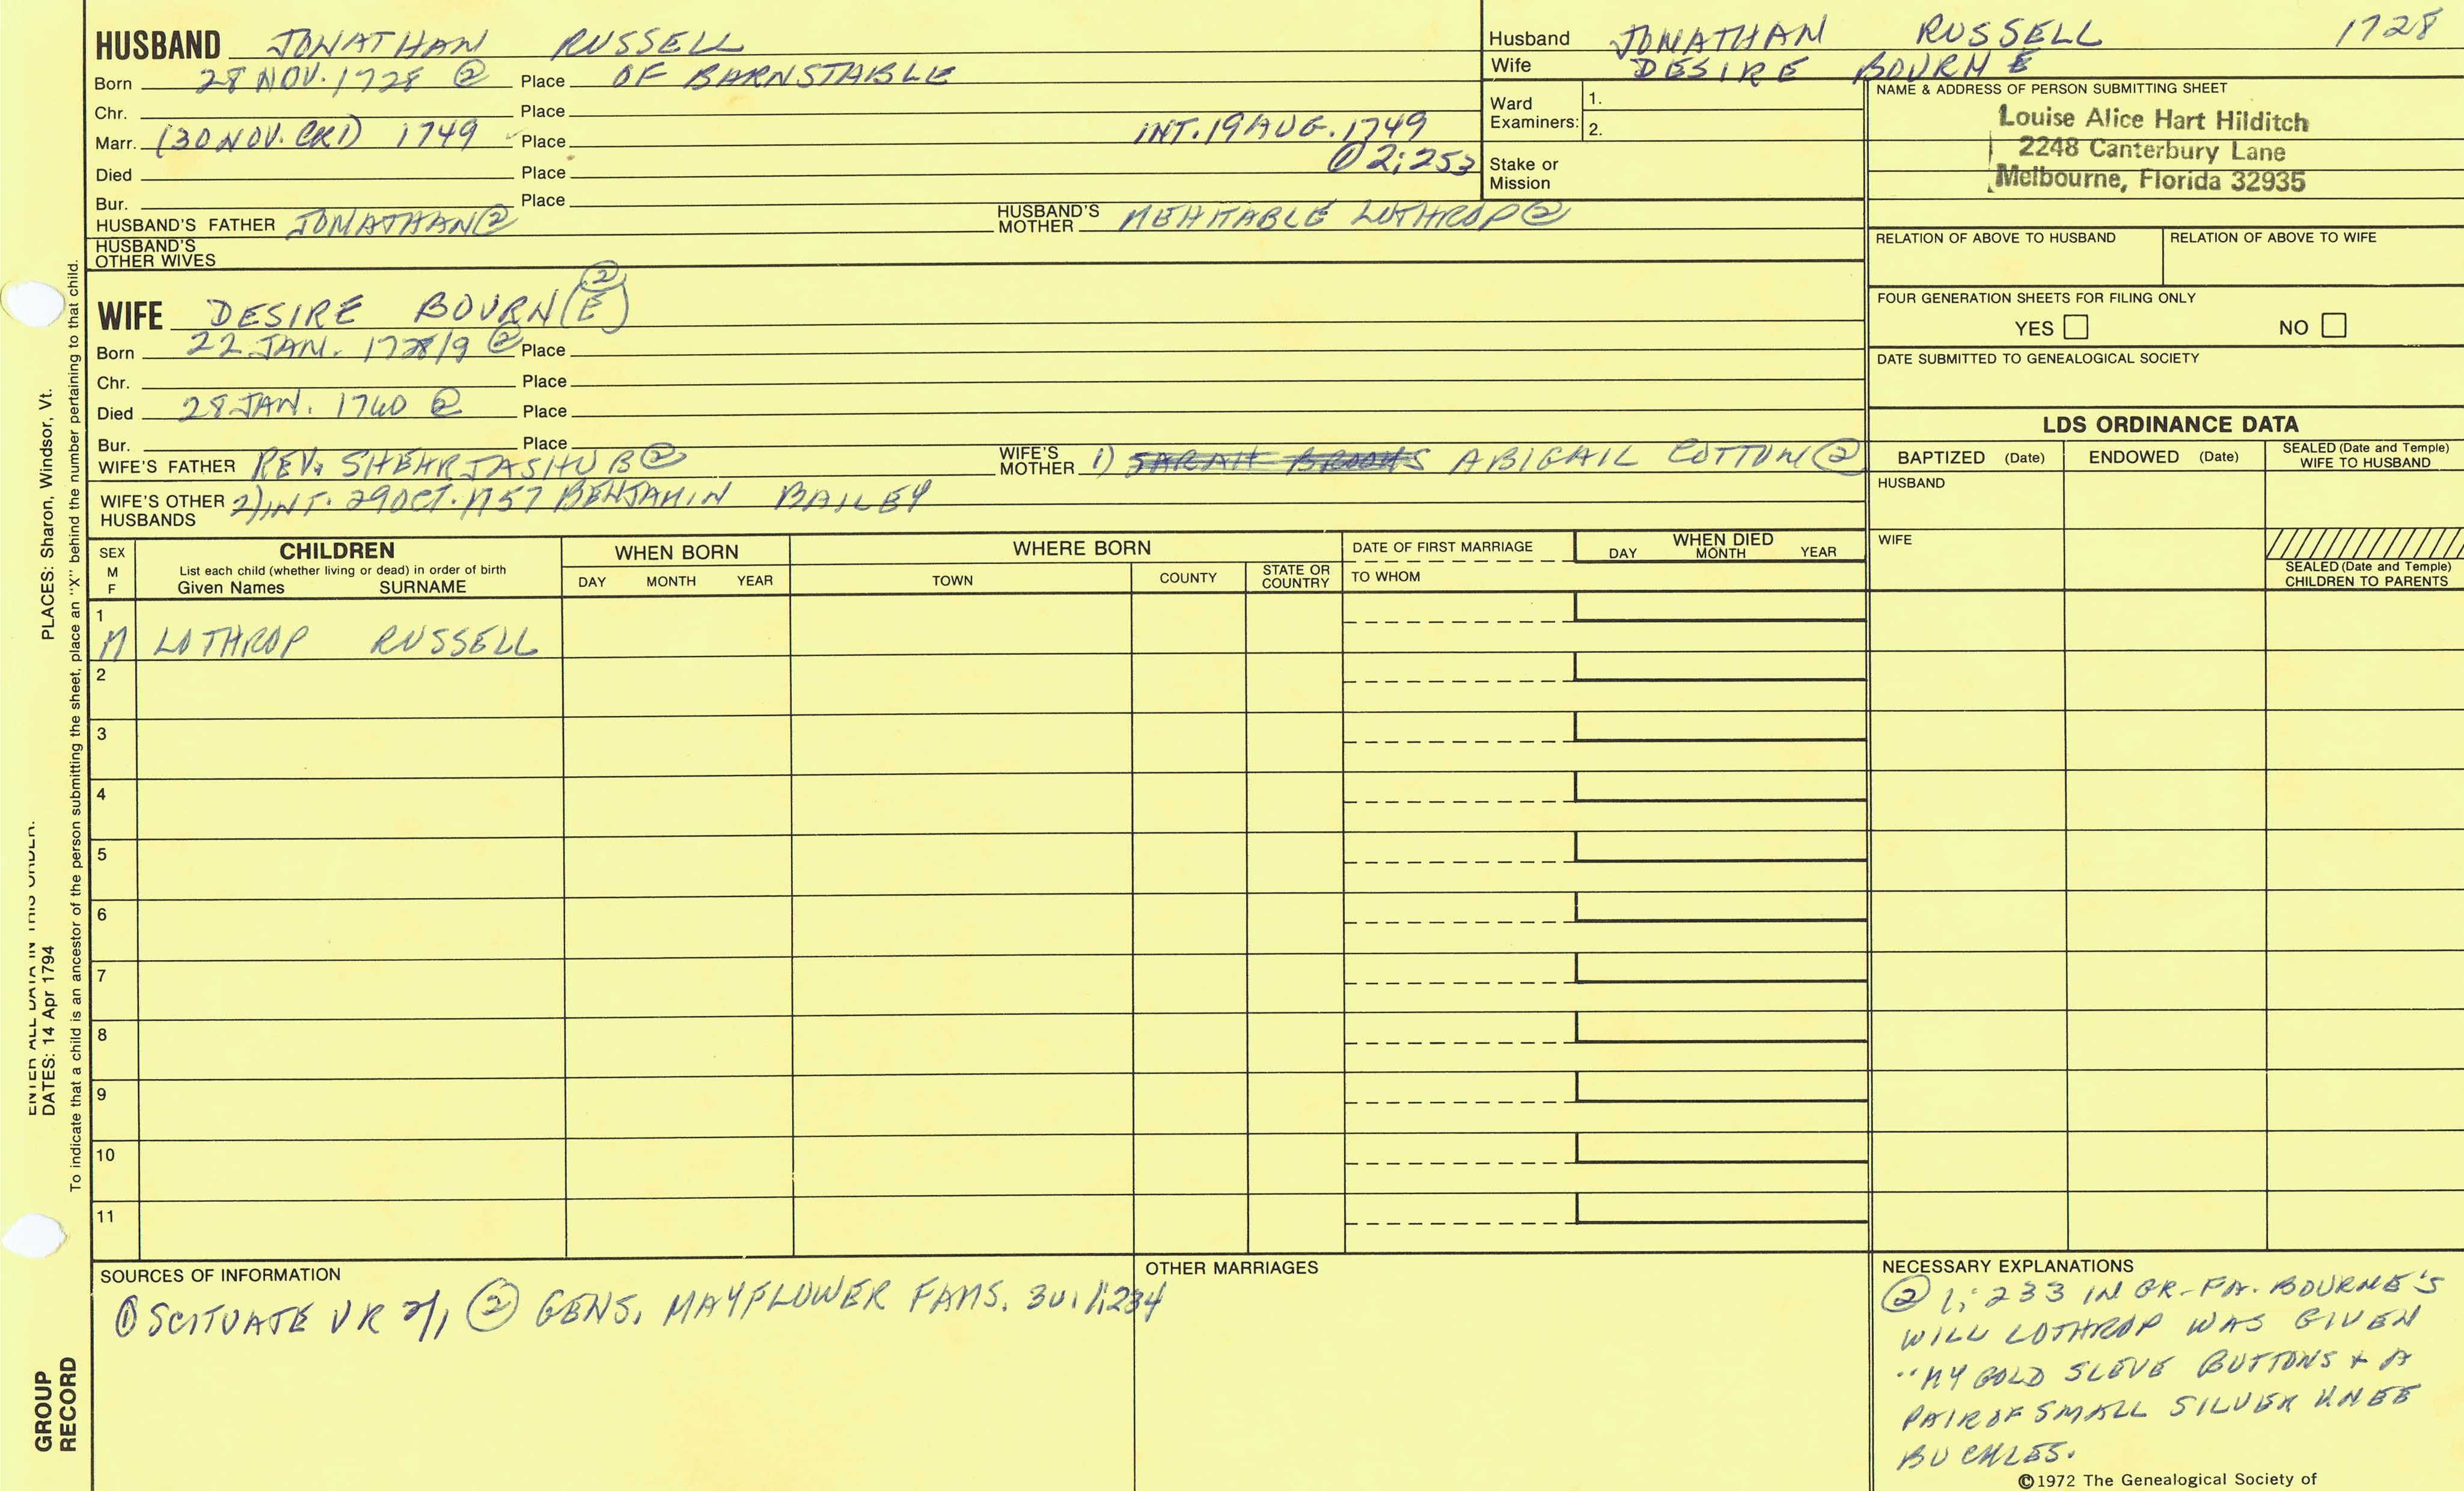 HUSBAND JONATHAN RUSSELL
Born 28 NOV. 1728 ② Place OF BARNSTABLE
Chr. Place
Marr. (30 NOV. CR1) 1749 Place INT. 19 AUG. 1749
① 2; 253
Died Place
Bur. Place
HUSBAND'S FATHER JONATHAN② HUSBAND'S MOTHER MEHITABLE LOTHROP②
HUSBAND'S OTHER WIVES
Husband JONATHAN RUSSELL 1728
Wife DESIRE BOURNE
Ward Examiners: 1.
2.
Stake or Mission
NAME & ADDRESS OF PERSON SUBMITTING SHEET
Louise Alice Hart Hilditch
2248 Canterbury Lane
Melbourne, Florida 32935
RELATION OF ABOVE TO HUSBAND RELATION OF ABOVE TO WIFE
FOUR GENERATION SHEETS FOR FILING ONLY
YES NO
DATE SUBMITTED TO GENEALOGICAL SOCIETY
WIFE DESIRE BOURN(E) ②
Born 22 JAN. 1728/9 ② Place
Chr. Place
Died 28 JAN. 1760 ② Place
Bur. Place
WIFE'S FATHER REV. SHEARJASHUB② WIFE'S MOTHER 1) SARAH BROOKS ABIGAIL COTTON②
WIFE'S OTHER HUSBANDS 2) INT. 29 OCT. 1757 BENJAMIN BAILEY
LDS ORDINANCE DATA
BAPTIZED (Date) ENDOWED (Date) SEALED (Date and Temple) WIFE TO HUSBAND
HUSBAND
WIFE
SEALED (Date and Temple) CHILDREN TO PARENTS
SEX M F
CHILDREN
List each child (whether living or dead) in order of birth
Given Names SURNAME
WHEN BORN
DAY MONTH YEAR
WHERE BORN
TOWN COUNTY STATE OR COUNTRY
DATE OF FIRST MARRIAGE
TO WHOM
WHEN DIED
DAY MONTH YEAR
1
M LOTHROP RUSSELL
2
3
4
5
6
7
8
9
10
11
SOURCES OF INFORMATION
① SCITUATE VR ② GENS. MAYFLOWER FAMS.
OTHER MARRIAGES
NECESSARY EXPLANATIONS
② 1; 233 IN GR-FA. BOURNE'S
WILL LOTHROP WAS GIVEN
"MY GOLD SLEVE BUTTONS + A
PAIR OF SMALL SILVER KNEE
BUCKLES.
©1972 The Genealogical Society of
PLACES: Sharon, Windsor, Vt.
ENTER ALL DATA IN THIS ORDER:
DATES: 14 Apr 1794
To indicate that a child is an ancestor of the person submitting the sheet, place an "X" behind the number pertaining to that child.
GROUP
RECORD